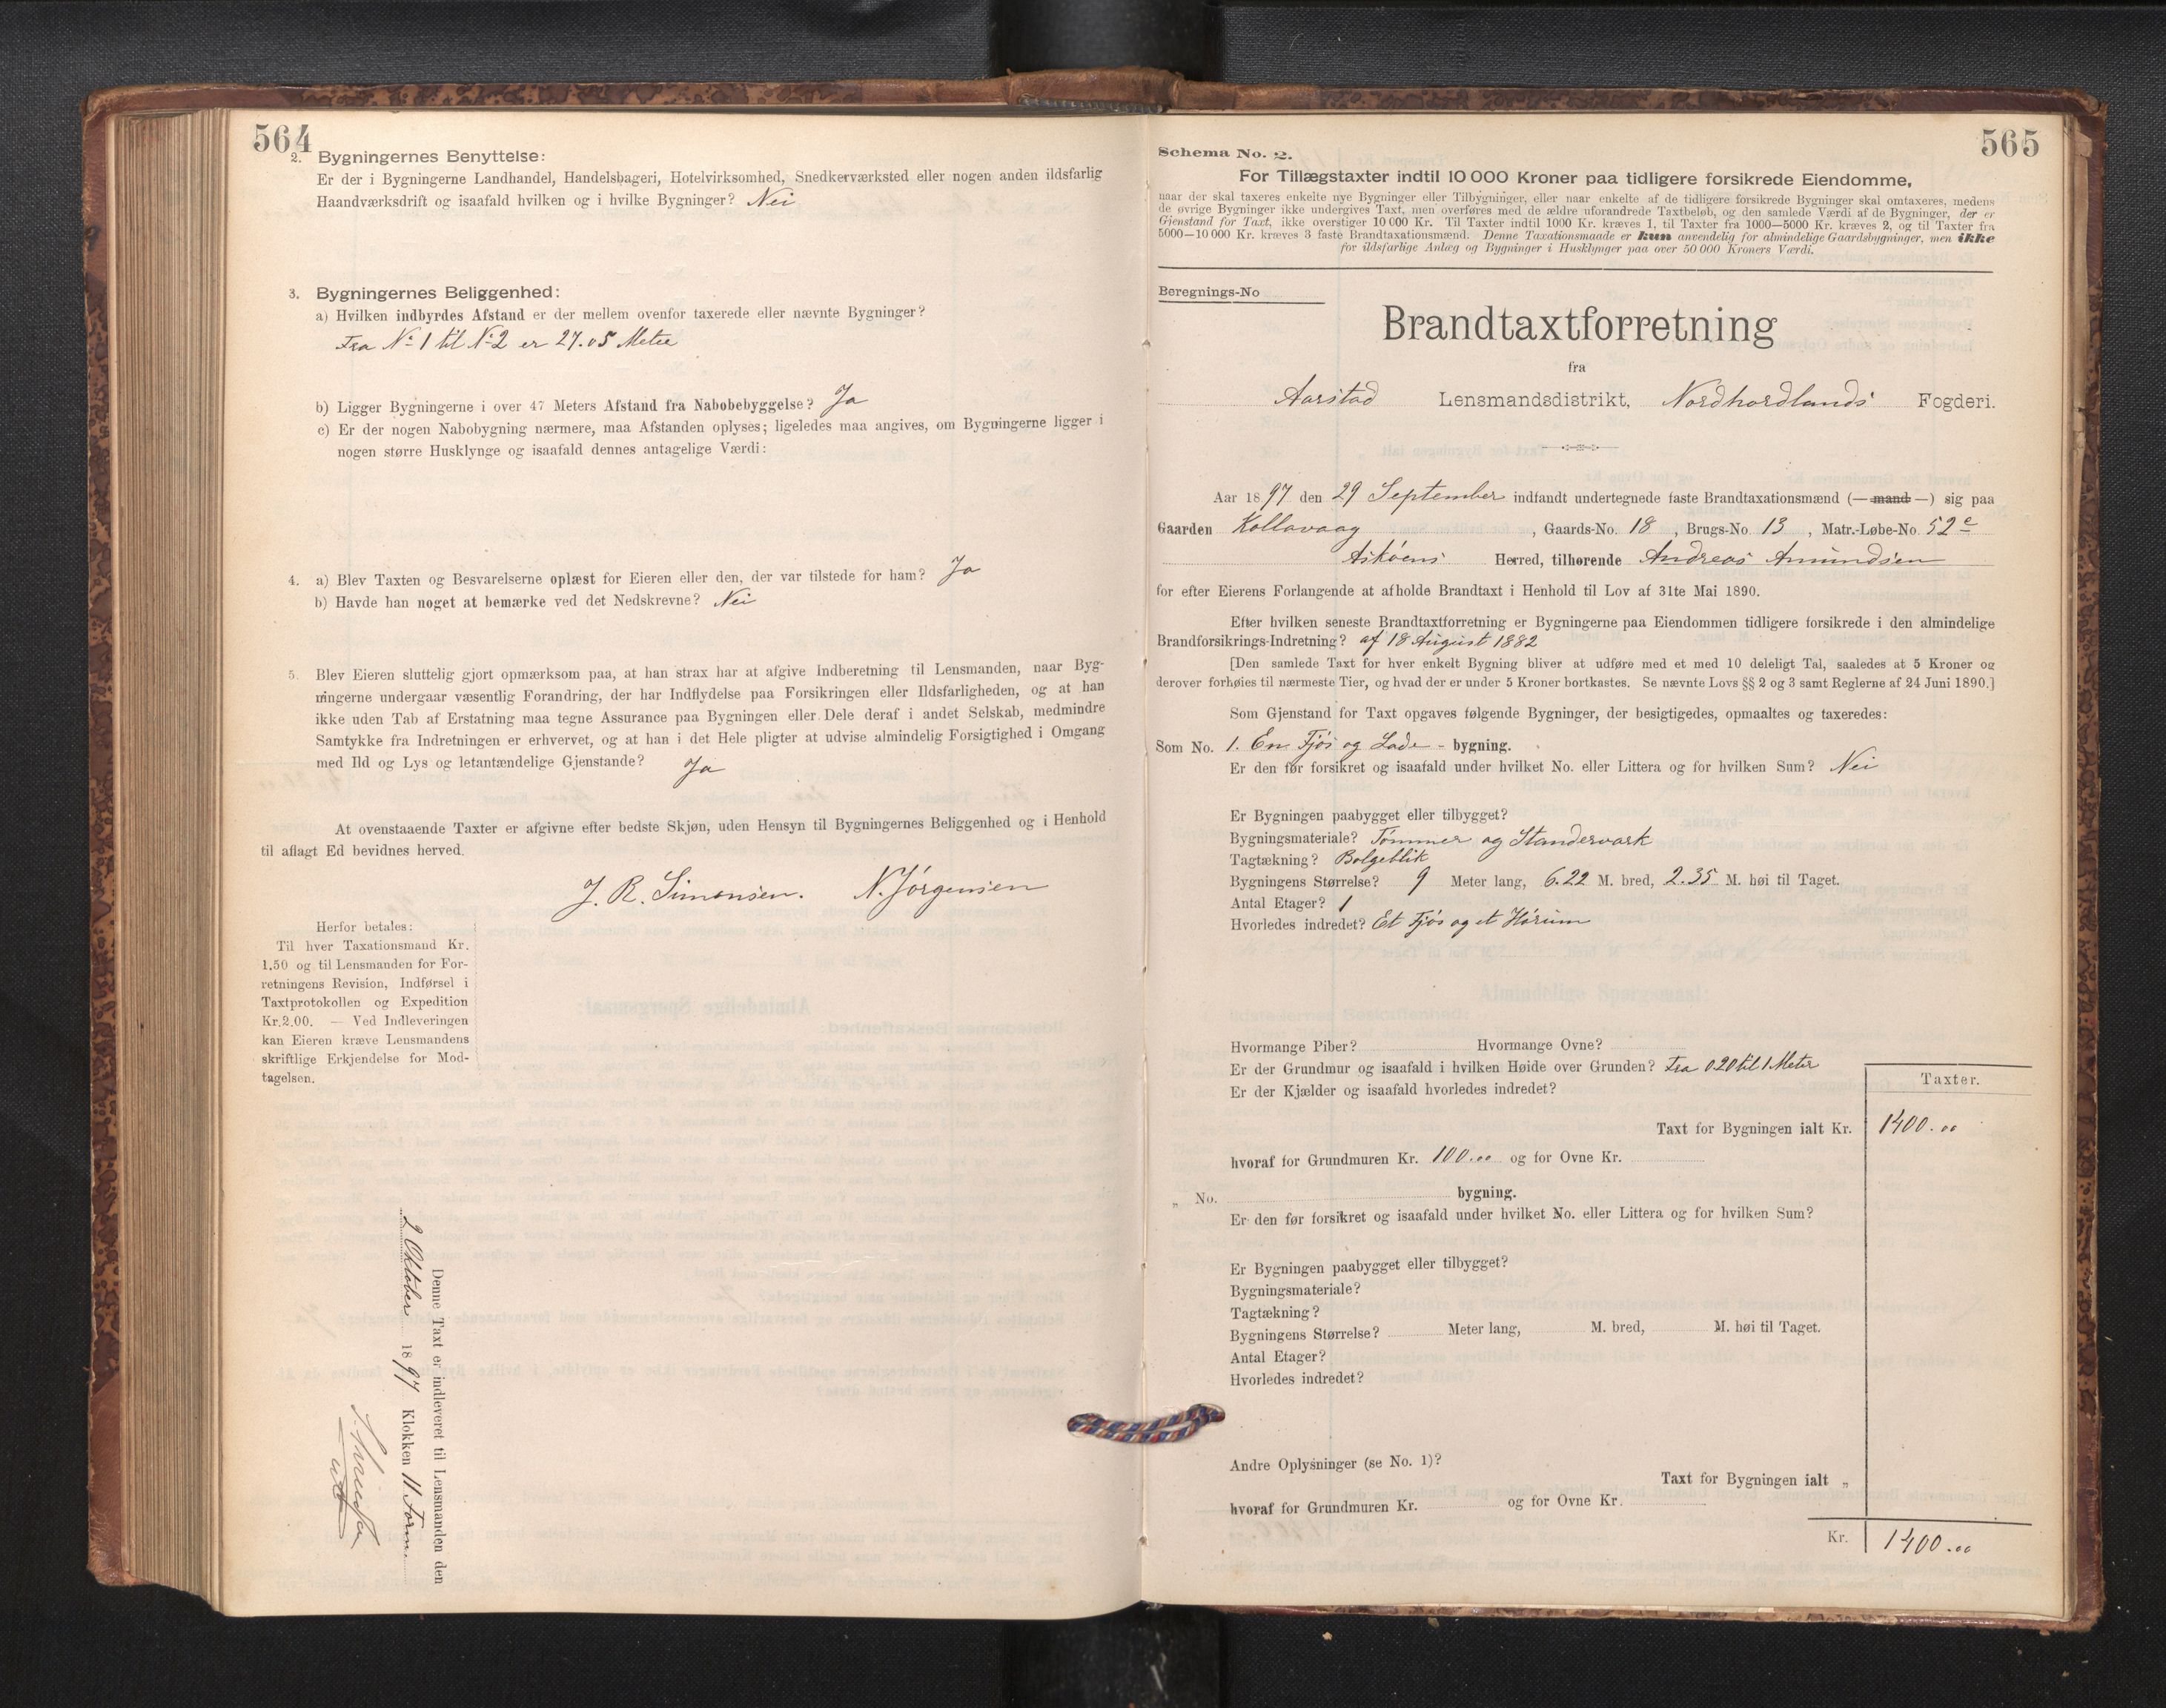 564
2. Bygningernes Benyttelse:
Er der i Bygningerne Landhandel, Handelsbageri, Hotelvirksomhed, Snedkerværksted eller nogen anden ildsfarlig
Haandværksdrift og isaafald hvilken og i hvilke Bygninger? Nei
3. Bygningernes Beliggenhed:
a) Hvilken indbyrdes Afstand er der mellem ovenfor taxerede eller nævnte Bygninger?
Fra No 1 til No 2 er 27.05 Meter
b) Ligger Bygningerne i over 47 Meters Afstand fra Nabobebyggelse? Ja
c) Er der nogen Nabobygning nærmere, maa Afstanden oplyses; ligeledes maa angives, om Bygningerne ligger i
nogen større Husklynge og isaafald dennes antagelige Værdi:
4. a) Blev Taxten og Besvarelserne oplæst for Eieren eller den, der var tilstede for ham? Ja
b) Havde han noget at bemærke ved det Nedskrevne? Nei
5. Blev Eieren sluttelig gjort opmærksom paa, at han strax har at afgive Indberetning til Lensmanden, naar Byg-
ningerne undergaar væsentlig Forandring, der har Indflydelse paa Forsikringen eller Ildsfarligheden, og at han
ikke uden Tab af Erstatning maa tegne Assurance paa Bygningen eller Dele deraf i andet Selskab, medmindre
Samtykke fra Indretningen er erhvervet, og at han i det Hele pligter at udvise almindelig Forsigtighed i Omgang
med Ild og Lys og letantændelige Gjenstande? Ja
At ovenstaaende Taxter er afgivne efter bedste Skjøn, uden Hensyn til Bygningernes Beliggenhed og i Henhold
til aflagt Ed bevidnes herved.
J. R. Simonsen. N. Jørgensen
Herfor betales:
Til hver Taxationsmand Kr.
1,50 og til Lensmanden for For-
retningens Revision, Indførsel i
Taxtprotokollen og Expedition
Kr. 2.00. — Ved Indleveringen
kan Eieren kræve Lensmandens
skriftlige Erkjendelse for Mod-
tagelsen.
Denne Taxt er indleveret til Lensmanden den
2 Oktober 1897 Klokken 11 Form.
565
Schema No. 2.
For Tillægstaxter indtil 10 000 Kroner paa tidligere forsikrede Eiendomme,
naar der skal taxeres enkelte nye Bygninger eller Tilbygninger, eller naar enkelte af de tidligere forsikrede Bygninger skal omtaxeres, medens
de øvrige Bygninger ikke undergives Taxt, men overføres med de ældre uforandrede Taxtbeløb, og den samlede Værdi af de Bygninger, der er
Gjenstand for Taxt, ikke overstiger 10 000 Kr. Til Taxter indtil 1000 Kr. kræves 1, til Taxter fra 1000—5000 Kr. kræves 2, og til Taxter fra
5000—10 000 Kr. kræves 3 faste Brandtaxationsmænd. Denne Taxationsmaade er kun anvendelig for almindelige Gaardsbygninger, men ikke
for ildsfarlige Anlæg og Bygninger i Husklynger paa over 50 000 Kroners Værdi.
Beregnings-No
Brandtaxtforretning
fra
Aarstad Lensmandsdistrikt, Nordhordlands Fogderi.
Aar 1897 den 29 September indfandt undertegnede faste Brandtaxationsmænd (— mand —) sig paa
Gaarden Kollavaag, Gaards-No. 18, Brugs-No. 13, Matr.-Løbe-No. 52 c
Askøens Herred, tilhørende Andreas Amundsen
for efter Eierens Forlangende at afholde Brandtaxt i Henhold til Lov af 31te Mai 1890.
Efter hvilken seneste Brandtaxtforretning er Bygningerne paa Eiendommen tidligere forsikrede i den almindelige
Brandforsikrings-Indretning? af 18 August 1882
[Den samlede Taxt for hver enkelt Bygning bliver at udføre med et med 10 deleligt Tal, saaledes at 5 Kroner og
derover forhøies til nærmeste Tier, og hvad der er under 5 Kroner bortkastes. Se nævnte Lovs §§ 2 og 3 samt Reglerne af 24 Juni 1890.]
Som Gjenstand for Taxt opgaves følgende Bygninger, der besigtigedes, opmaaltes og taxeredes:
Som No. 1. En Fjøs og Lade - bygning.
Er den før forsikret og isaafald under hvilket No. eller Littera og for hvilken Sum? Nei
Er Bygningen paabygget eller tilbygget?
Bygningsmateriale? Tømmer og Standerværk
Tagtækning? Bølgeblik
Bygningens Størrelse? 9 Meter lang, 6.22 M. bred, 2.35 M. høi til Taget.
Antal Etager? 1
Hvorledes indredet? Et Fjøs og et Hørum
Hvormange Piber? Hvormange Ovne?
Er der Grundmur og isaafald i hvilken Høide over Grunden? Fra 0.20 til 1 Meter
Er der Kjælder og isaafald hvorledes indredet?
Taxter.
Taxt for Bygningen ialt Kr. 1400.00
hvoraf for Grundmuren Kr. 100.00 og for Ovne Kr.
„ No. bygning.
Er den før forsikret og isaafald under hvilket No. eller Littera og for hvilken Sum?
Er Bygningen paabygget eller tilbygget?
Bygningsmateriale?
Tagtækning?
Bygningens Størrelse? Meter lang, M. bred, M. høi til Taget.
Antal Etager?
Hvorledes indredet?
Andre Oplysninger (se No. 1)?
Taxt for Bygningen ialt „
hvoraf for Grundmuren Kr. og for Ovne Kr.
Kr. 1400.00